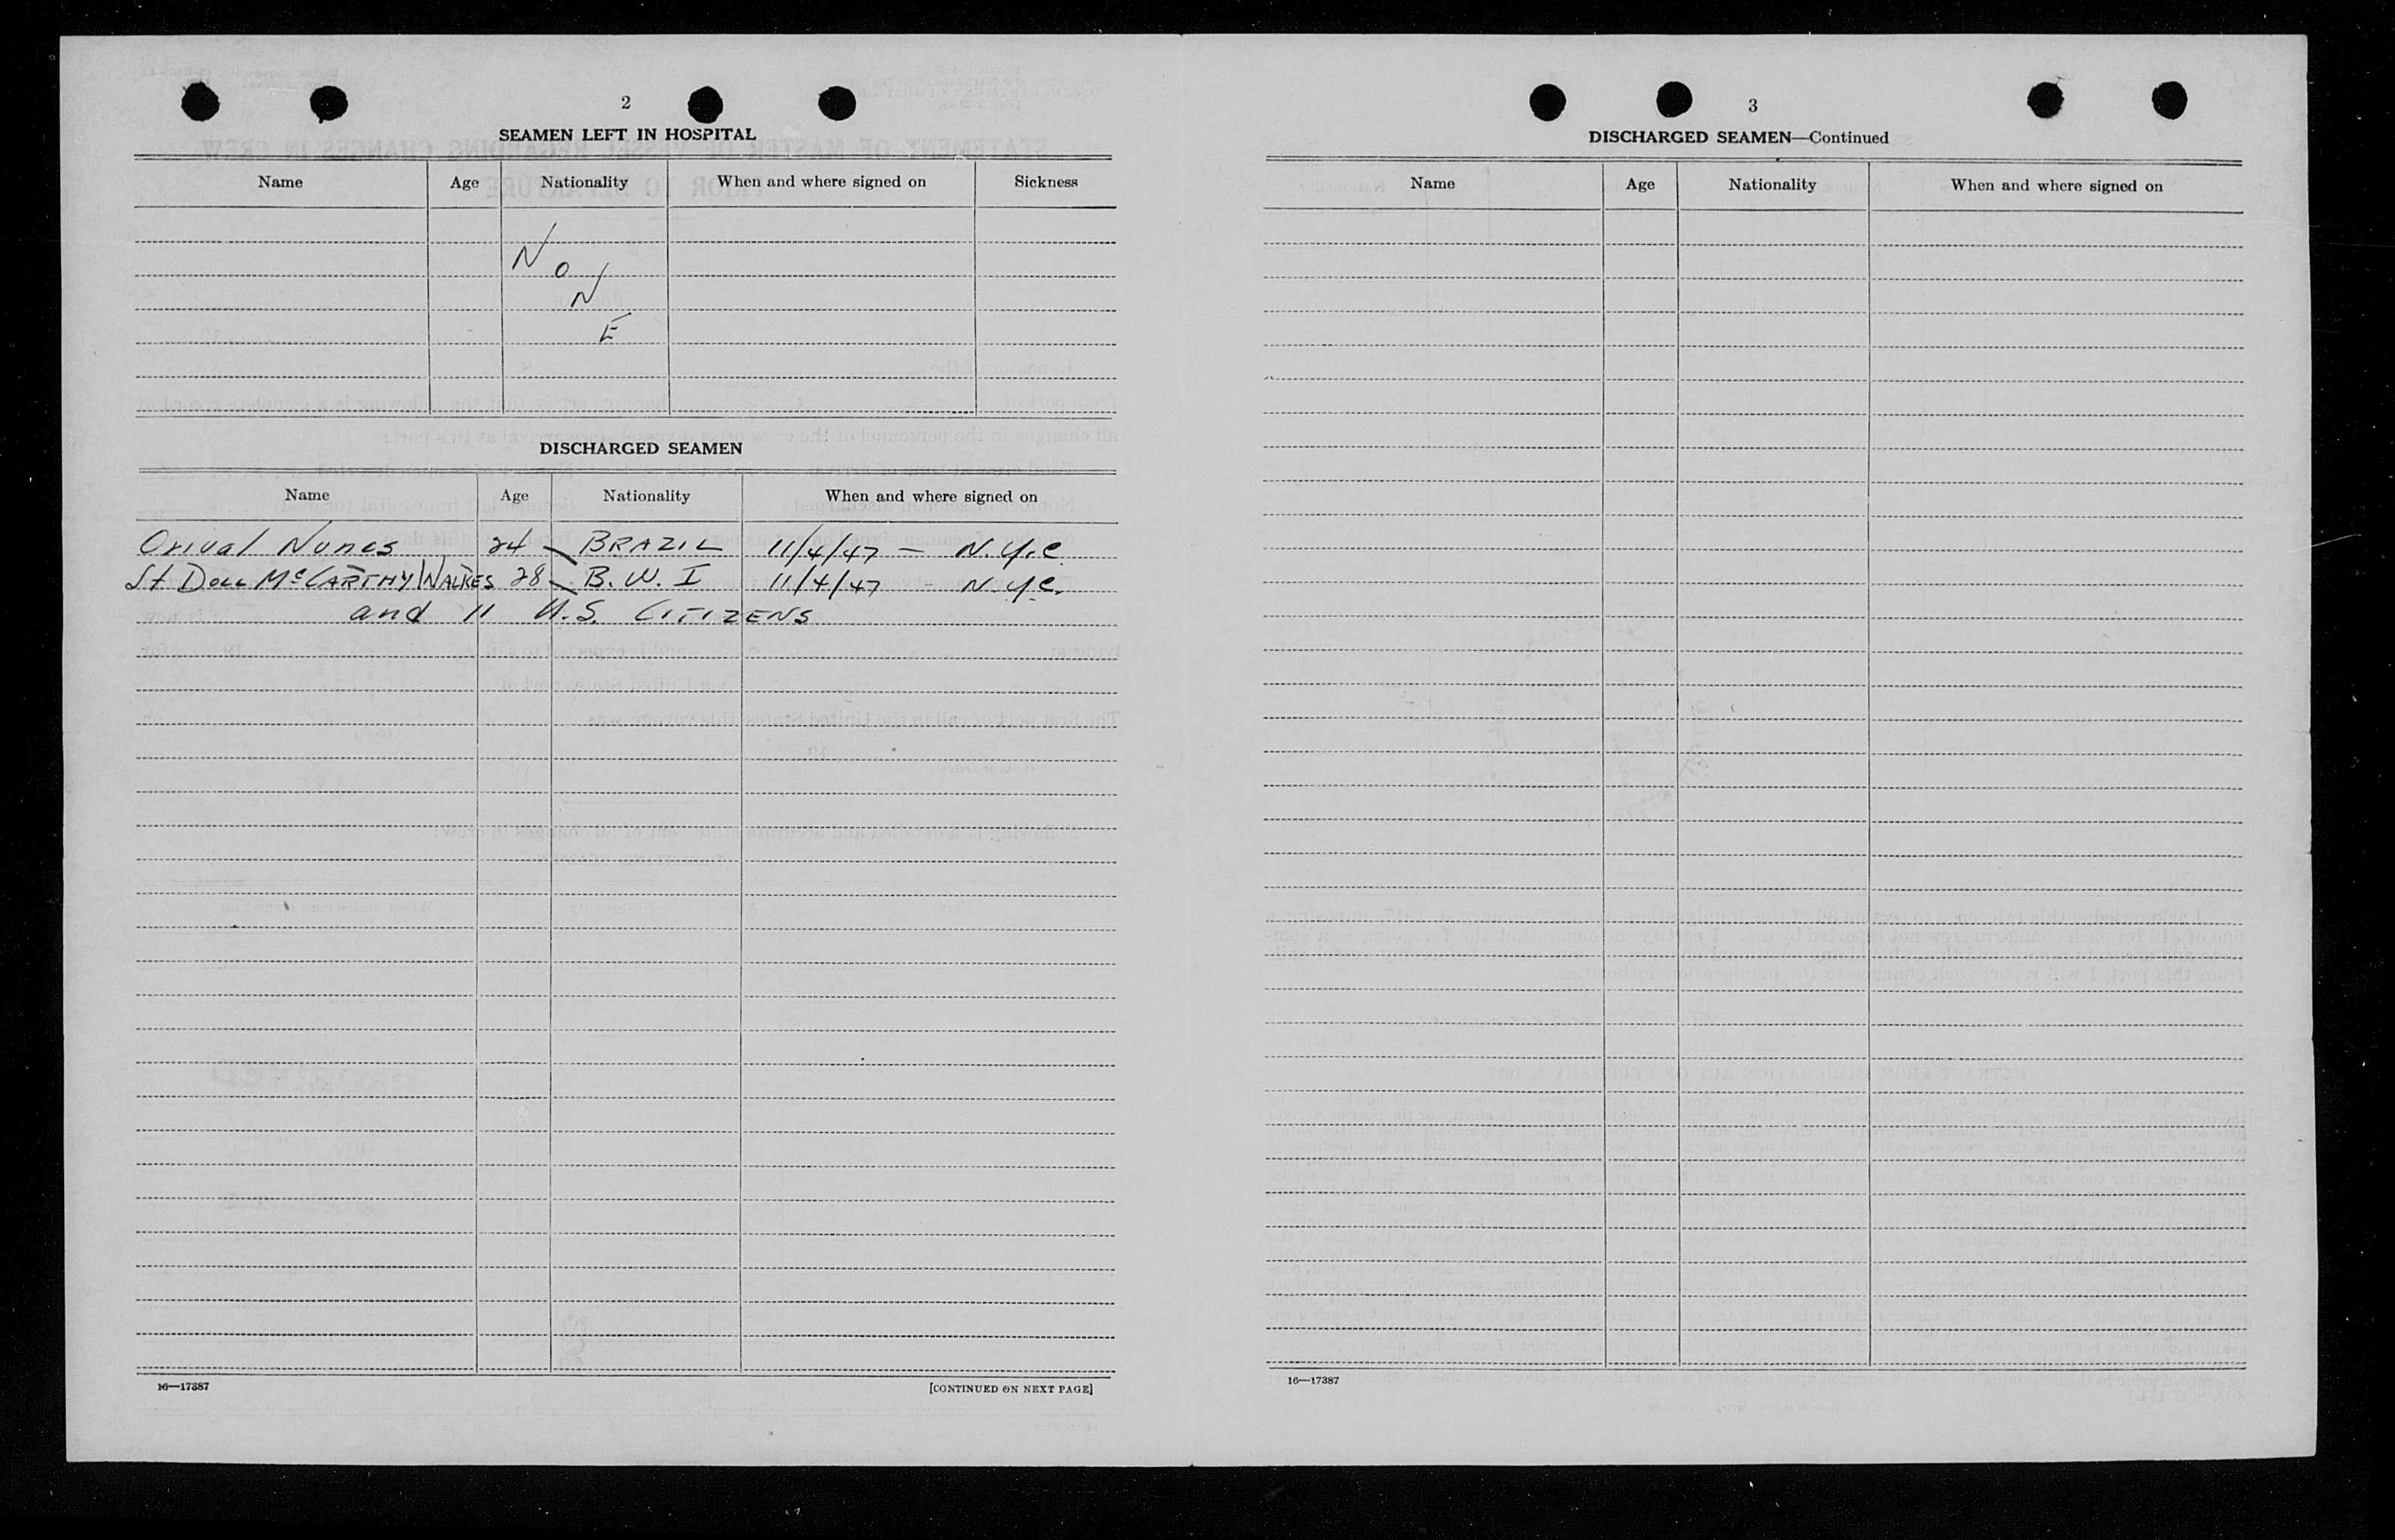 2
SEAMEN LEFT IN HOSPITAL
Name Age Nationality When and where signed on Sickness
N
o
N
E
DISCHARGED SEAMEN
Name Age Nationality When and where signed on
Orival Nunes 24 BRAZIL 11/4/47 — N.Y.C.
St Doll McCARTHY WALKES 28 B.W.I 11/4/47 - N.Y.C.
and 11 U.S. CITIZENS
16—17387 [CONTINUED ON NEXT PAGE]
3
DISCHARGED SEAMEN—Continued
Name Age Nationality When and where signed on
16—17387